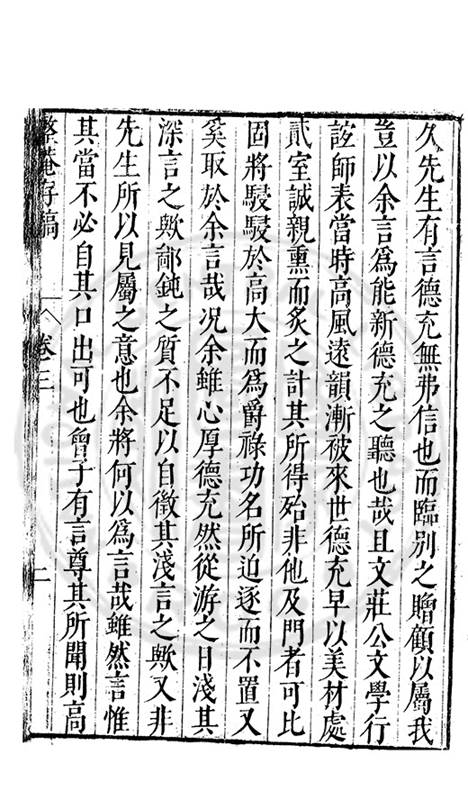 久先生有言德充無弗信也而臨別之贈顧以屬我
豈以余言爲能新德充之聽也哉且文莊公文學行
誼師表當時高風遠韻漸被來世德充早以美材處
貳室誠親熏而炙之計其所得殆非他及門者可比
固將駸駸於高大而爲爵祿功名所迫逐而不置又
奚取於余言哉况余雖心厚德充然從游之日淺其
深言之歟鄙鈍之質不足以自徵其淺言之歟又非
先生所以見屬之意也余將何以爲言哉雖然言惟
其當不必自其口出可也曾子有言尊其所聞則高
整菴存稿
卷三
二